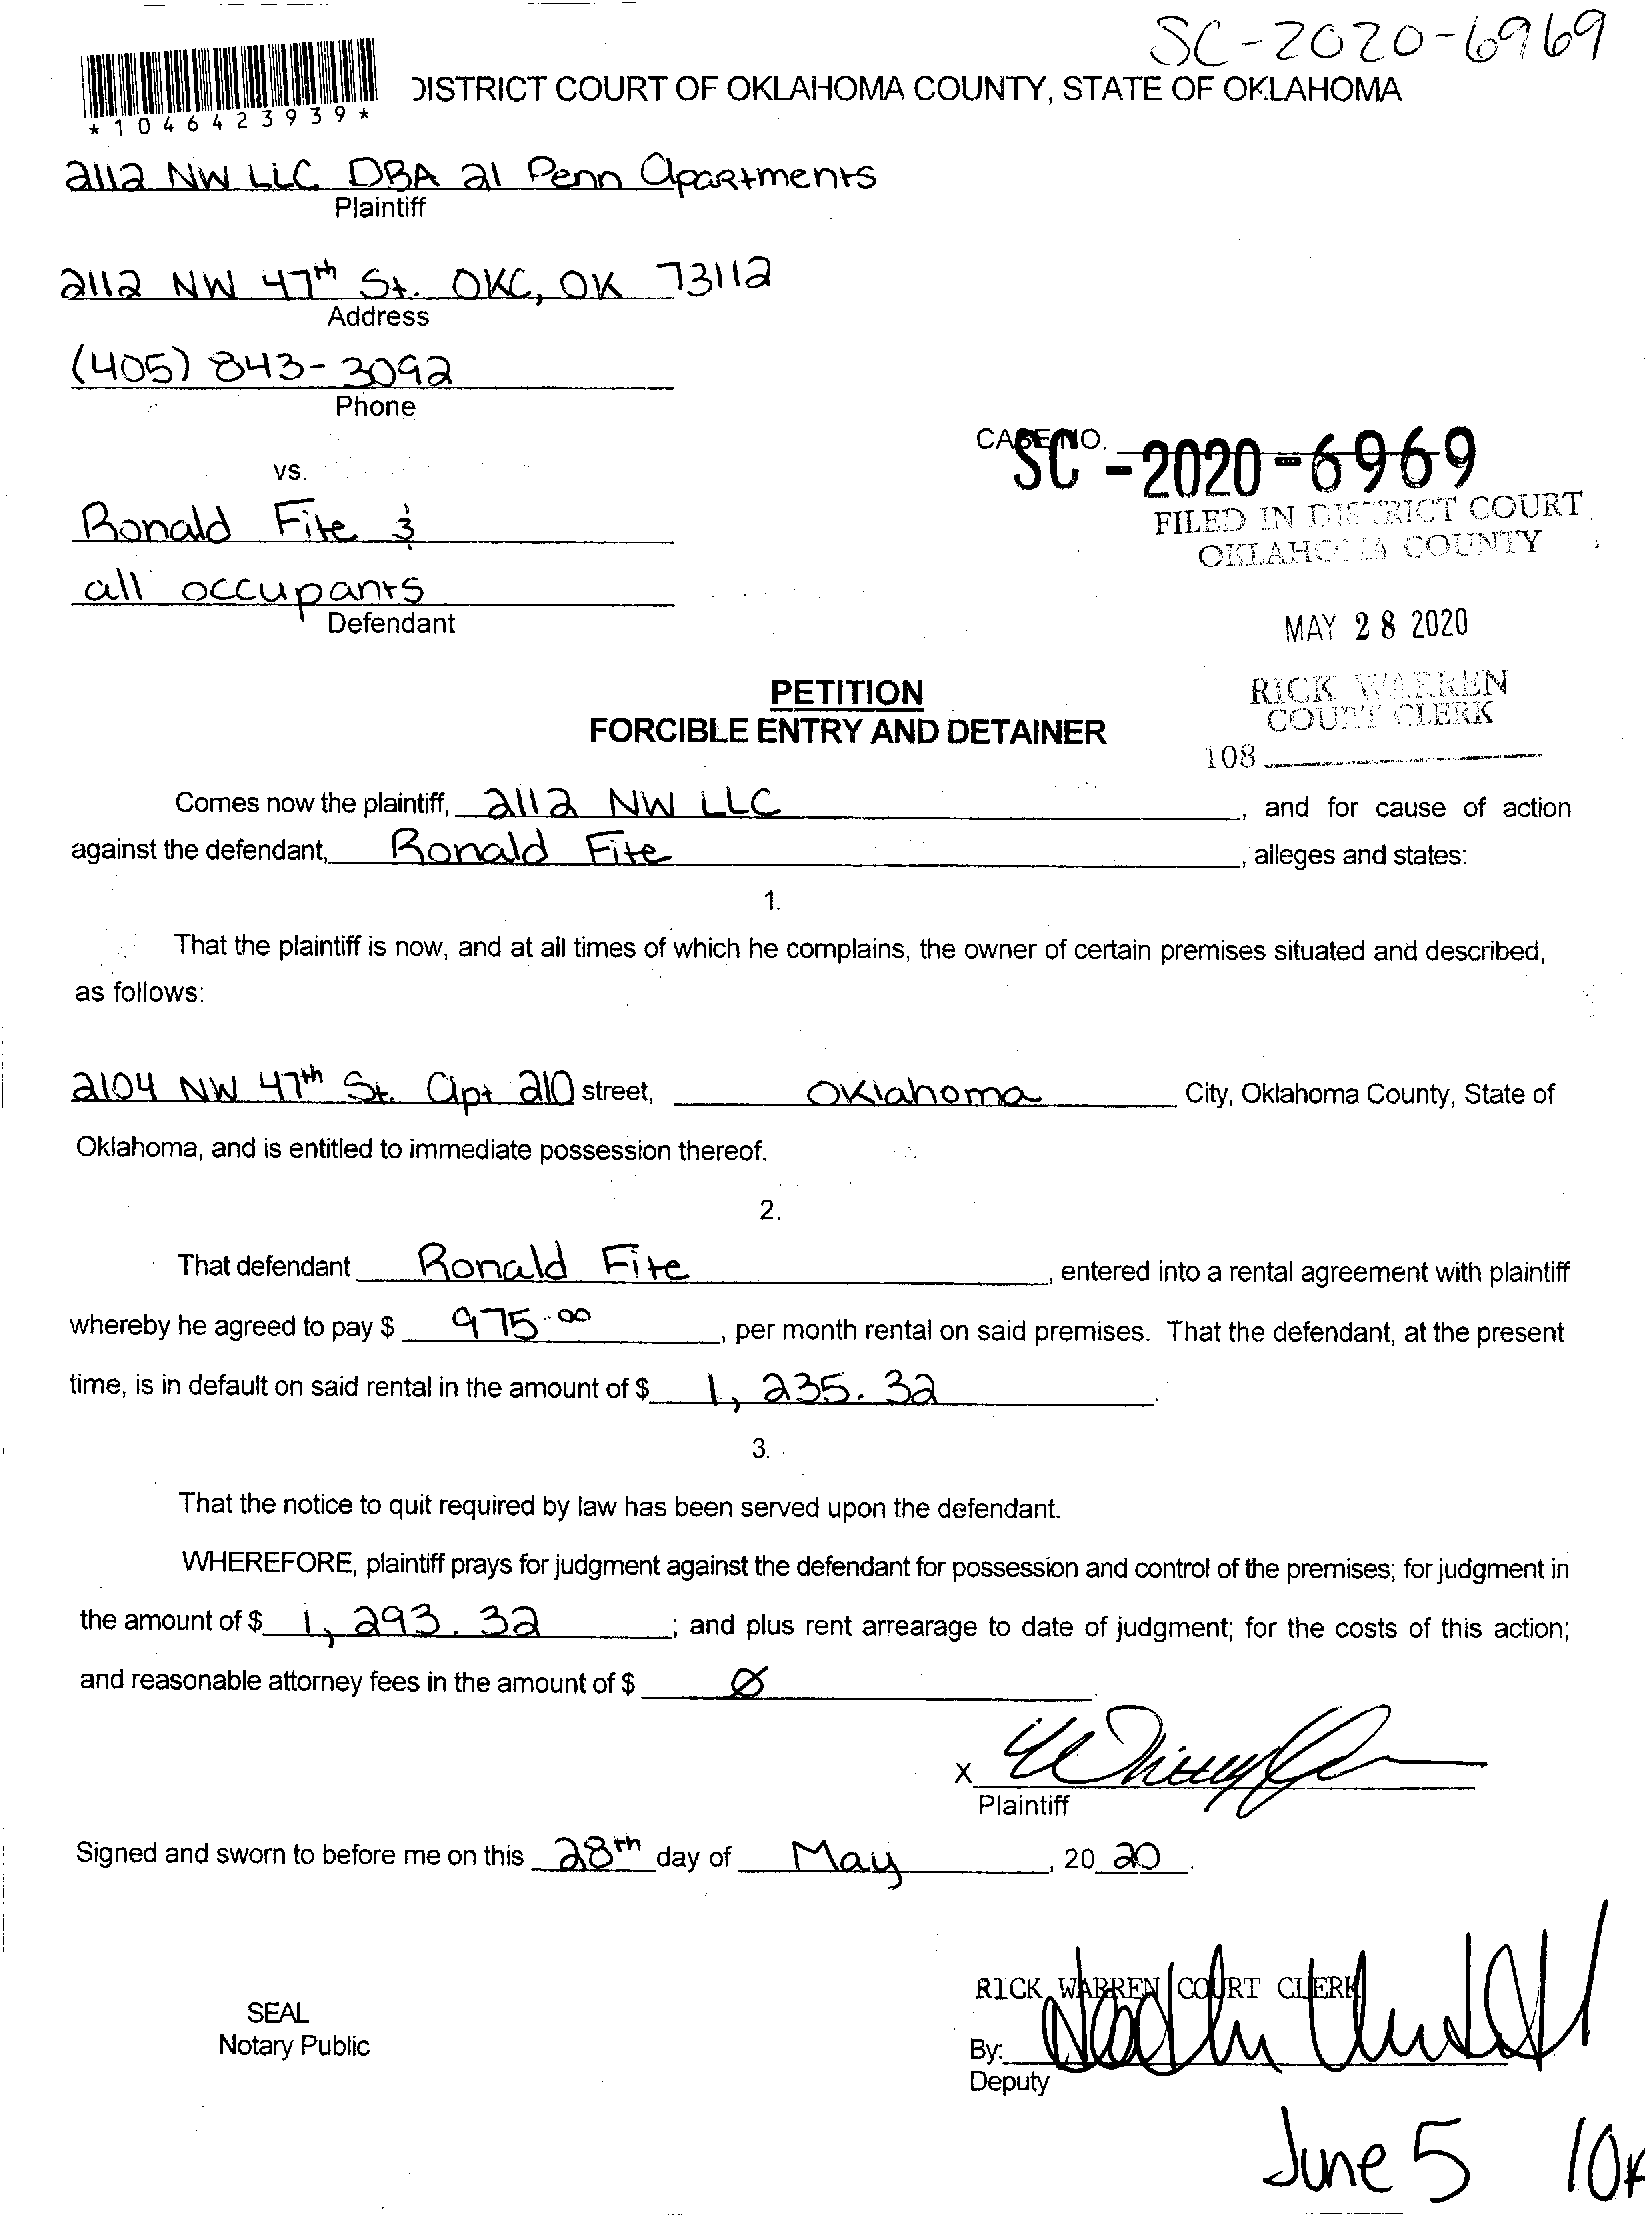 SC-2020-6969
DISTRICT COURT OF OKLAHOMA COUNTY, STATE OF OKLAHOMA
*1046423939*
2112 NW LLC DBA 21 Penn Apartments
Plaintiff
2112 NW 47th St. OKC, OK 73112
Address
(405) 843-3092
Phone
CASE NO.
SC-2020-6969
vs.
FILED IN DISTRICT COURT
OKLAHOMA COUNTY
Ronald Fite &
all occupants
Defendant
MAY 28 2020
PETITION
FORCIBLE ENTRY AND DETAINER
RICK WARREN
COURT CLERK
108
Comes now the plaintiff, 2112 NW LLC, and for cause of action
against the defendant, Ronald Fite, alleges and states:
1.
That the plaintiff is now, and at all times of which he complains, the owner of certain premises situated and described,
as follows:
2104 NW 47th St. Apt 210 street, Oklahoma City, Oklahoma County, State of
Oklahoma, and is entitled to immediate possession thereof.
2.
That defendant Ronald Fite, entered into a rental agreement with plaintiff
whereby he agreed to pay $ 975.00, per month rental on said premises. That the defendant, at the present
time, is in default on said rental in the amount of $ 1,235.32.
3.
That the notice to quit required by law has been served upon the defendant.
WHEREFORE, plaintiff prays for judgment against the defendant for possession and control of the premises; for judgment in
the amount of $ 1,293.32; and plus rent arrearage to date of judgment; for the costs of this action;
and reasonable attorney fees in the amount of $ Ø
X
Plaintiff
Signed and sworn to before me on this 28th day of May, 2020.
RICK WARREN COURT CLERK
SEAL
Notary Public
By:
Deputy
June 5 10